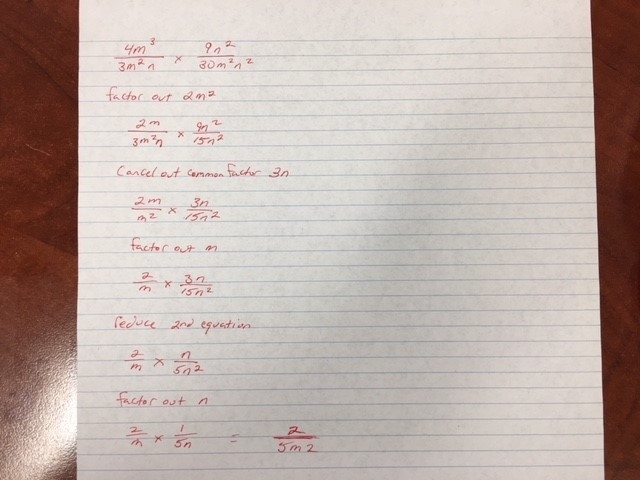 4m³/3m²n × 9n²/30m²n²
factor out 2m²
2m/3m²n × 9n²/15n²
Cancel out common factor 3n
2m/m² × 3n/15n²
factor out m
2/m × 3n/15n²
reduce 2nd equation
2/m × n/5n²
factor out n
2/m × 1/5n = 2/5m2